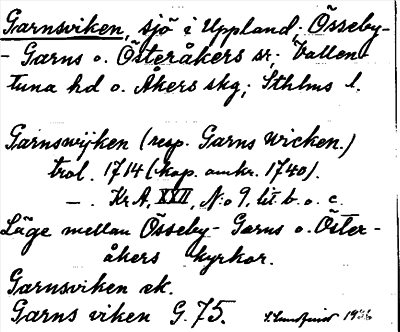 Garnsviken, sjö i Uppland, Össeby-
- Garns o. Österåkers sr; Vallen-
tuna hd o. Åkers skg; Sthlms l.
Garnswijken (resp. Garns Wicken.)
trol. 1714 (kop. omkr. 1740).
—. KrA, XXII, N:o 9, lit. b. o. c.
Läge mellan Össeby- Garns o. Öster-
åkers kyrkor.
Garnsviken ek.
Garns viken G. 75.
1936